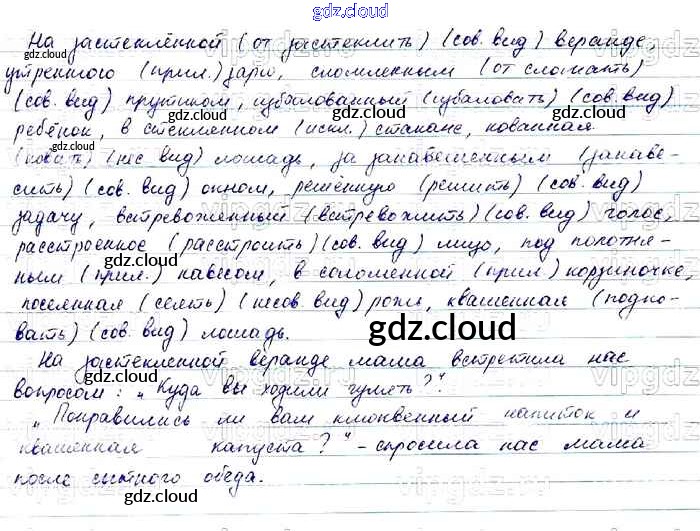 gdz.cloud
На застеклённой (от застеклить) (сов. вид) веранде,
утреннюю (прил.) зарю, сломленным (от сломать)
(сов. вид) прутиком, избалованный (избаловать) (сов. вид)
ребёнок, в стеклянном (искл.) стакане, кованная
(ковать) (нес вид) лошадь, за занавешенным (занаве-
сить) (сов. вид) окном, решённую (решить) (сов. вид)
задачу, встревоженный (встревожить) (сов. вид) голос,
расстроенное (расстроить) (сов. вид) лицо, под полотня-
ным (прил.) навесом, в соломенной (прил) корзиночке,
посеянная (сеять) (несов. вид) рожь, квашенная (подко-
вать) (сов. вид) лошадь.
На застекленной веранде мама встретила нас
вопросом: „Куда вы ходили гулять?".
„Понравились ли вам клюквенный напиток и
квашенная капуста?" - спросила нас мама
после сытного обеда.